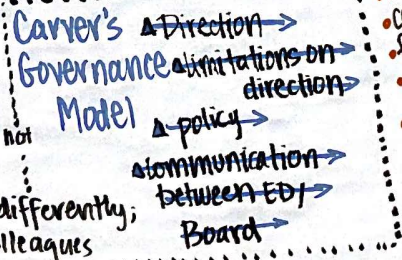 Carver's
Governance
Model
△ Direction
△ limitations on
direction
△ policy
△ communication
between ED/
Board
not
differently;
lleagues